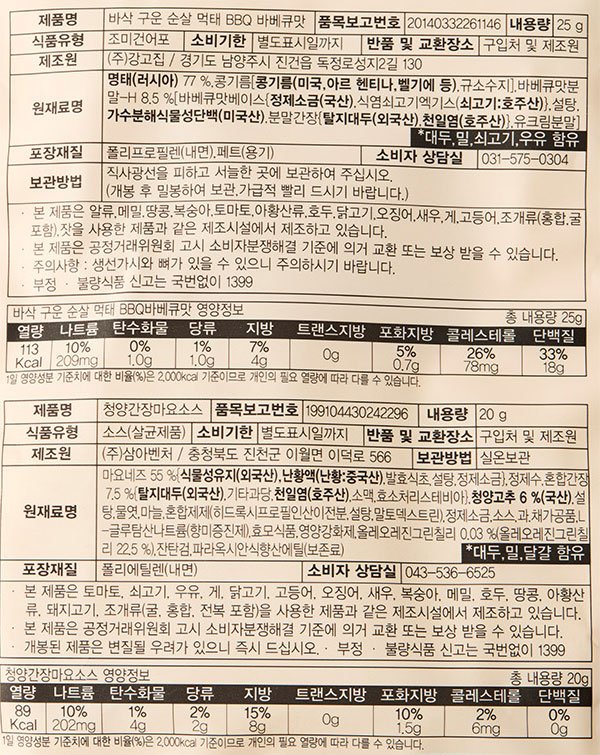 제품명 바삭 구운 순살 먹태 BBQ 바베큐맛 품목보고번호 20140332261146 내용량 25 g
식품유형 조미건어포 소비기한 별도표시일까지 반품 및 교환장소 구입처 및 제조원
제조원 (주)강고집 / 경기도 남양주시 진건읍 독정로성지2길 130
원재료명 명태(러시아) 77 %,콩기름[콩기름(미국,아르 헨티나,벨기에 등),규소수지],바베큐맛분
말-H 8.5 %[바베큐맛베이스{정제소금(국산),식염쇠고기엑기스(쇠고기:호주산)},설탕,
가수분해식물성단백(미국산),분말간장{탈지대두(외국산),천일염(호주산)},유크림분말]
*대두,밀,쇠고기,우유 함유
포장재질 폴리프로필렌(내면),페트(용기) 소비자 상담실 031-575-0304
보관방법 직사광선을 피하고 서늘한 곳에 보관하여 주십시오.
(개봉 후 밀봉하여 보관,가급적 빨리 드시기 바랍니다.)
· 본 제품은 알류,메밀,땅콩,복숭아,토마토,아황산류,호두,닭고기,오징어,새우,게,고등어,조개류(홍합,굴
포함),잣을 사용한 제품과 같은 제조시설에서 제조하고 있습니다.
· 본 제품은 공정거래위원회 고시 소비자분쟁해결 기준에 의거 교환 또는 보상 받을 수 있습니다.
· 주의사항 : 생선가시와 뼈가 있을 수 있으니 주의하시기 바랍니다.
· 부정 · 불량식품 신고는 국번없이 1399
바삭 구운 순살 먹태 BBQ바베큐맛 영양정보 총 내용량 25g
열량 나트륨 탄수화물 당류 지방 트랜스지방 포화지방 콜레스테롤 단백질
113 10% 0% 1% 7% 5% 26% 33%
Kcal 209mg 1.0g 1.0g 4g 0g 0.7g 78mg 18g
1일 영양성분 기준치에 대한 비율(%)은 2,000kcal 기준이므로 개인의 필요 열량에 따라 다를 수 있습니다.
제품명 청양간장마요소스 품목보고번호 199104430242296 내용량 20 g
식품유형 소스(살균제품) 소비기한 별도표시일까지 반품 및 교환장소 구입처 및 제조원
제조원 (주)삼아벤처 / 충청북도 진천군 이월면 이덕로 566 보관방법 실온보관
원재료명 마요네즈 55 %{식물성유지(외국산),난황액(난황:중국산),발효식초,설탕,정제소금},정제수,혼합간장
7.5 %{탈지대두(외국산),기타과당,천일염(호주산),소맥,효소처리스테비아},청양고추 6 %(국산),설
탕,물엿,마늘,혼합제제(히드록시프로필인산이전분,설탕,말토덱스트린),정제소금,소스,과.채가공품,L
-글루탐산나트륨(향미증진제),효모식품,영양강화제,올레오레진그린칠리 0.03 %(올레오레진그린칠
리 22.5 %),잔탄검,파라옥시안식향산에틸(보존료)
*대두,밀,달걀 함유
포장재질 폴리에틸렌(내면) 소비자 상담실 043-536-6525
· 본 제품은 토마토, 쇠고기, 우유, 게, 닭고기, 고등어, 오징어, 새우, 복숭아, 메밀, 호두, 땅콩, 아황산
류, 돼지고기, 조개류(굴, 홍합, 전복 포함)을 사용한 제품과 같은 제조시설에서 제조하고 있습니다.
· 본 제품은 공정거래위원회 고시 소비자분쟁해결 기준에 의거 교환 또는 보상 받을 수 있습니다.
· 개봉된 제품은 변질될 우려가 있으니 즉시 드십시오. · 부정 · 불량식품 신고는 국번없이 1399
청양간장마요소스 영양정보 총 내용량 20g
열량 나트륨 탄수화물 당류 지방 트랜스지방 포화지방 콜레스테롤 단백질
89 10% 1% 2% 15% 10% 2% 0%
Kcal 202mg 4g 2g 8g 0g 1.5g 6mg 0g
1일 영양성분 기준치에 대한 비율(%)은 2,000kcal 기준이므로 개인의 필요 열량에 따라 다를 수 있습니다.